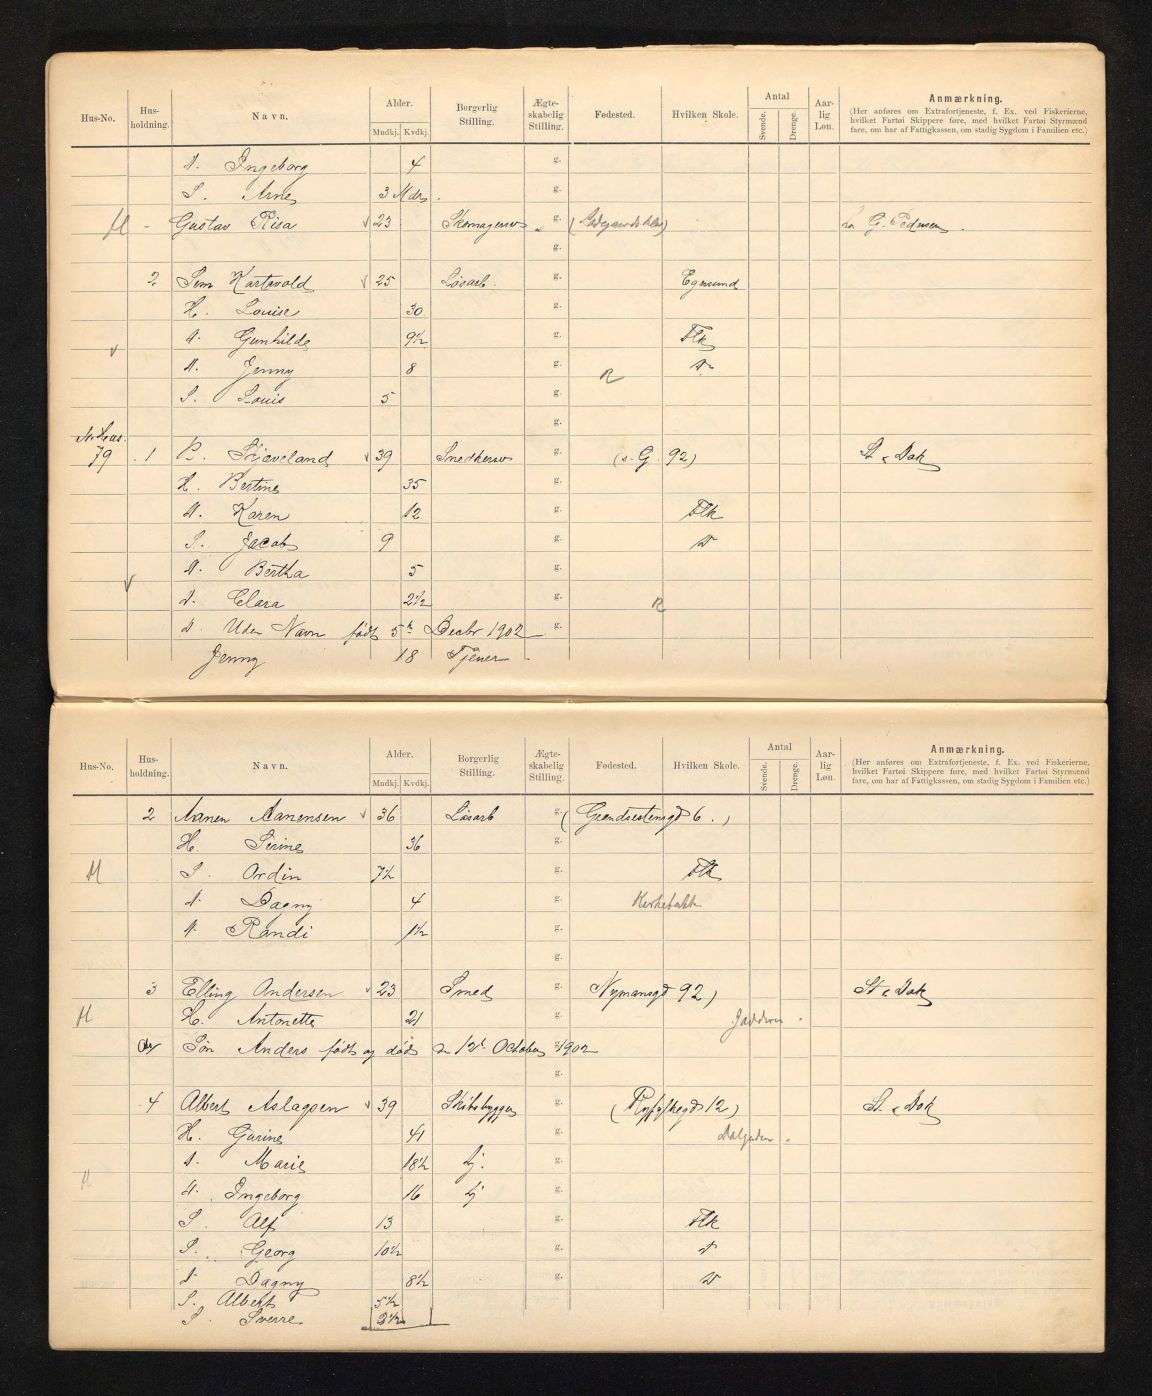 Hus-No. Hus-holdning. Navn. Alder. Mndkj. Kvdkj. Borgerlig Stilling. Ægte-skabelig Stilling. Fødested. Hvilken Skole. Antal Svende. Drenge. Aar-lig Løn. Anmærkning.
(Her anføres om Extrafortjeneste, f. Ex. ved Fiskerierne, hvilket Fartøi Skippere føre, med hvilket Fartøi Styrmænd fare, om har af Fattigkassen, om stadig Sygdom i Familien etc.)
D. Ingeborg 4 g.
S. Arne 3 Mdr. g.
M - Gustav Risa 23 Skomagersv g. G. Pedersen.
g.
2 Sem Hartvold 25 Løsarb. g. Egersund
H. Louise 30 g.
D. Gunhilde 9½ g. Flk
D. Jenny 8 g. D
S. Louis 5 g.
g.
79 1 P. Skjæveland 39 Snedkersv g. (s. G. 92) St. Dok
H. Bertine 35 g.
D. Karen 12 g. Flk
S. Jacob 9 g. D
D. Bertha 5 g.
D. Clara 2½ g.
D. Uden Navn født 5te Decbr 1902 g.
Jenny 18 Tjener
Hus-No. Hus-holdning. Navn. Alder. Mndkj. Kvdkj. Borgerlig Stilling. Ægte-skabelig Stilling. Fødested. Hvilken Skole. Antal Svende. Drenge. Aar-lig Løn. Anmærkning.
(Her anføres om Extrafortjeneste, f. Ex. ved Fiskerierne, hvilket Fartøi Skippere føre, med hvilket Fartøi Styrmænd fare, om har af Fattigkassen, om stadig Sygdom i Familien etc.)
2 Aanen Aanensen 36 Løsarb g. 6.)
H. Serine 36 g.
M S. Ordin 7½ g. Flk
D. Dagny 4 g. Kirkebakk
D. Randi 1½ g.
g.
3 Elling Andersen 23 Smed g. Nymansgd 92) St. Dok
M H. Antonette 21 g.
Søn Anders født og død den 12te October 1902
g.
4 Albert Aslagsen 39 Skibsbygger g. (Ryfylkegd 12) St. Dok
H. Gurine 41 g.
D. Marie 18½ Tj. g.
M D. Ingeborg 16 Tj g.
S. Alf 13 g. Flk
S. Georg 10½ g. D
D. Dagny 8½ g. D
S. Albert 5½
S. Sverre 2½